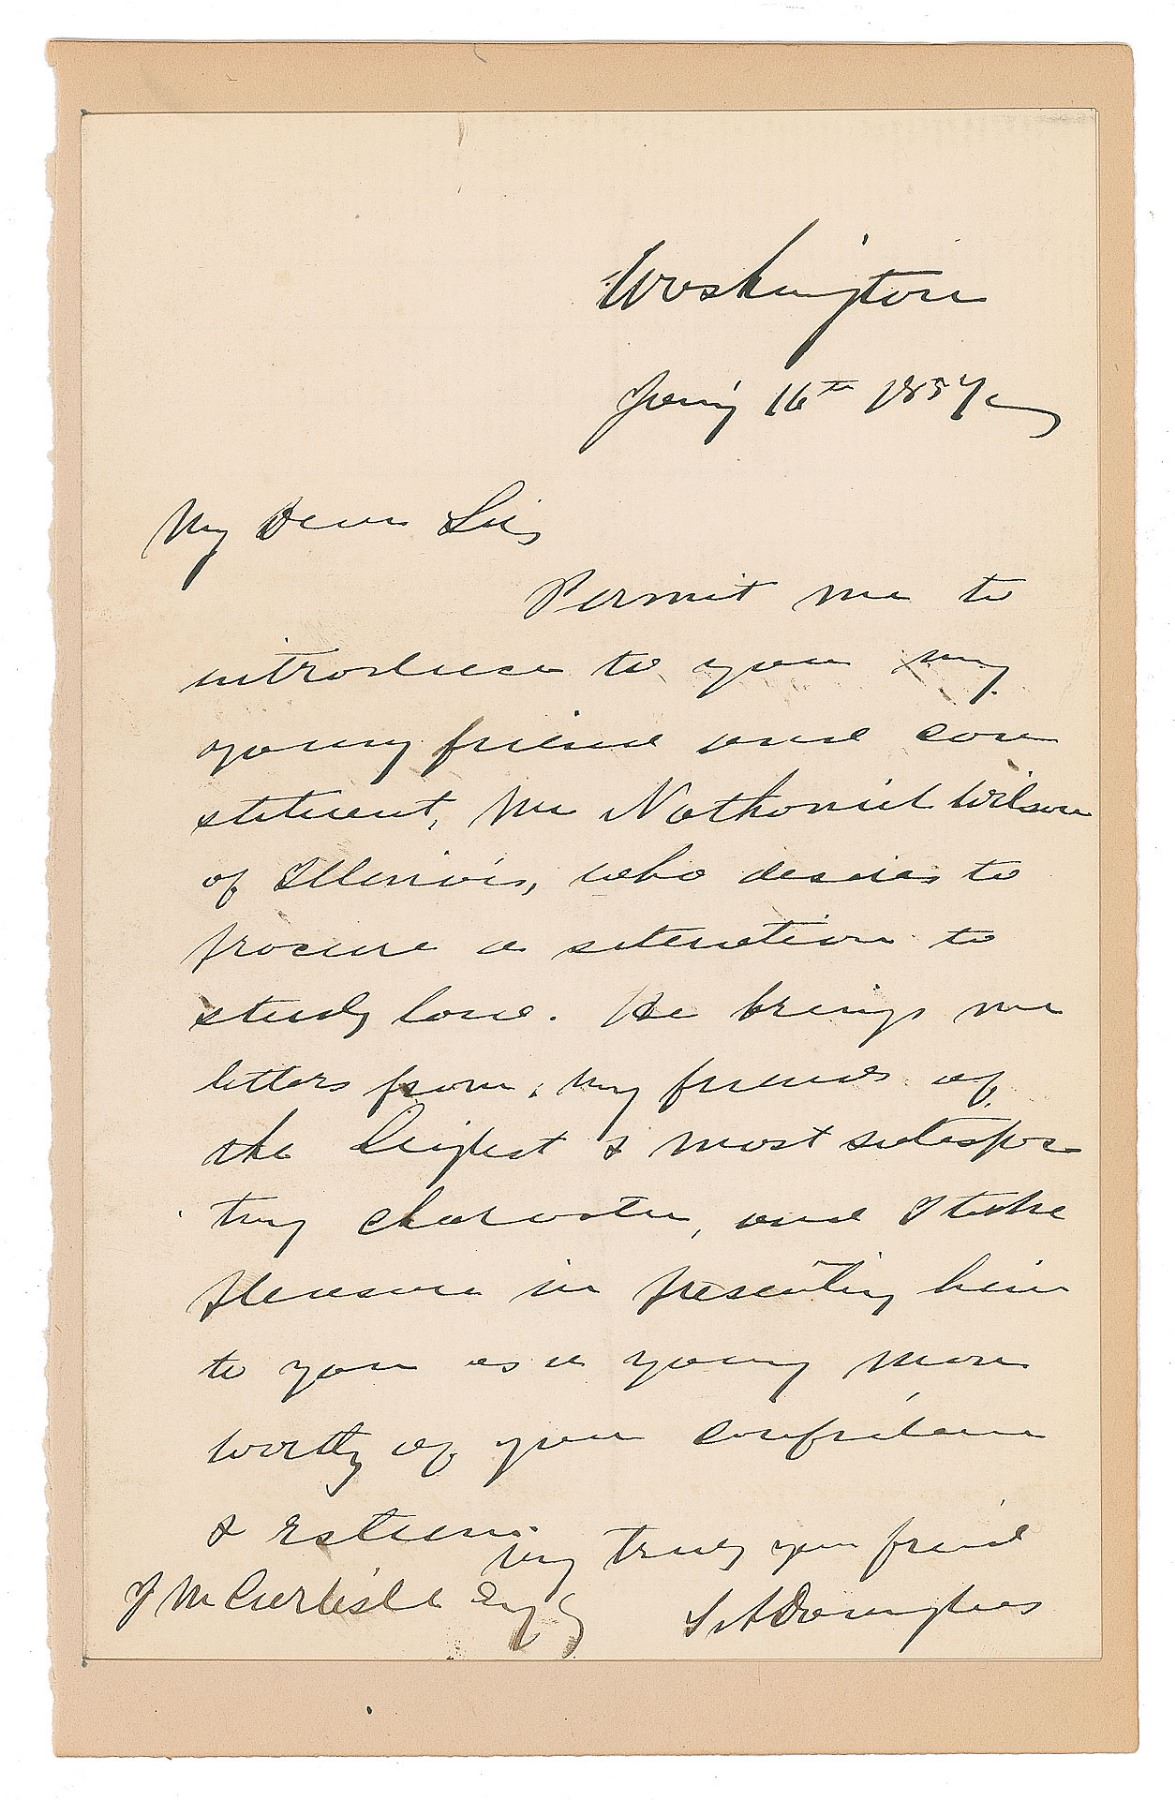 Washington
Jany 16th 1857
My Dear Sir,
Permit me to
introduce to you my
young friend and con
stituent, Mr Nathaniel Wilson
of Illinois, who desires to
procure a situation to
study law. He brings me
letters from my friends of
the highest & most satisfac
tory character, and I take
pleasure in presenting him
to you as a young man
worthy of your confidence
& esteem.
Very truly your friend
J M Carlisle Esq
S. A. Douglas